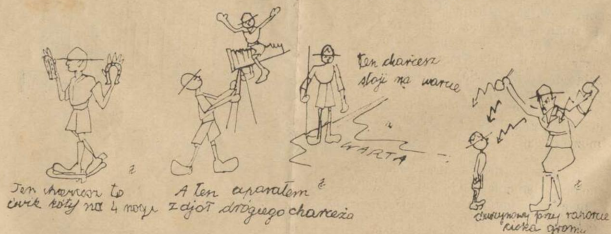 Ten charcesz to
ćwik kóty na 4 nogi
A ten aparatem
zdjoł drógiego charceża
ten charcesz
stoji na warcie
WARTA
drużynowy przy raporcie
gromy